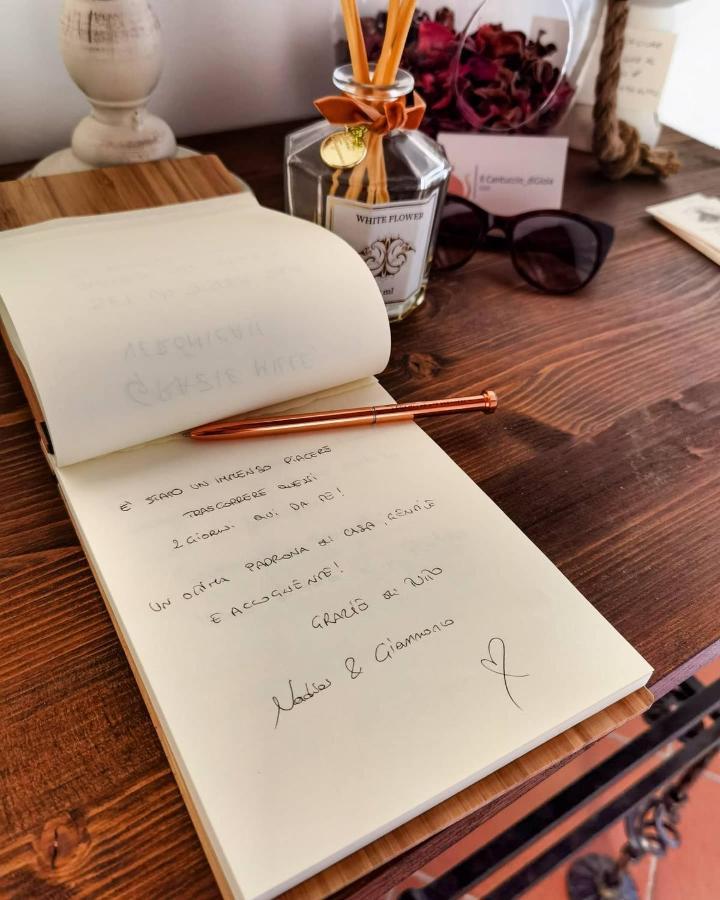 WHITE FLOWER
ml
Il Cantuccio_diGioia
GRAZIE MILLE
VERONICA!!
È STATO UN IMMENSO PIACERE
TRASCORRERE QUESTI
2 GIORNI QUI DA TE!
UN OTTIMA PADRONA DI CASA, GENTILE
E ACCOGLIENTE!
GRAZIE DI TUTTO
Nadia & Gianmarco